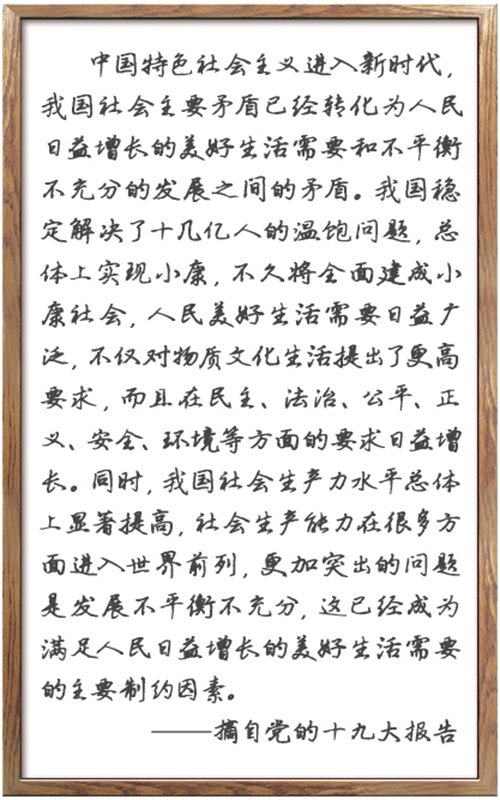 中国特色社会主义进入新时代，
我国社会主要矛盾已经转化为人民
日益增长的美好生活需要和不平衡
不充分的发展之间的矛盾。我国稳
定解决了十几亿人的温饱问题，总
体上实现小康，不久将全面建成小
康社会，人民美好生活需要日益广
泛，不仅对物质文化生活提出了更高
要求，而且在民主、法治、公平、正
义、安全、环境等方面的要求日益增
长。同时，我国社会生产力水平总体
上显著提高，社会生产能力在很多方
面进入世界前列，更加突出的问题
是发展不平衡不充分，这已经成为
满足人民日益增长的美好生活需要
的主要制约因素。
——摘自党的十九大报告